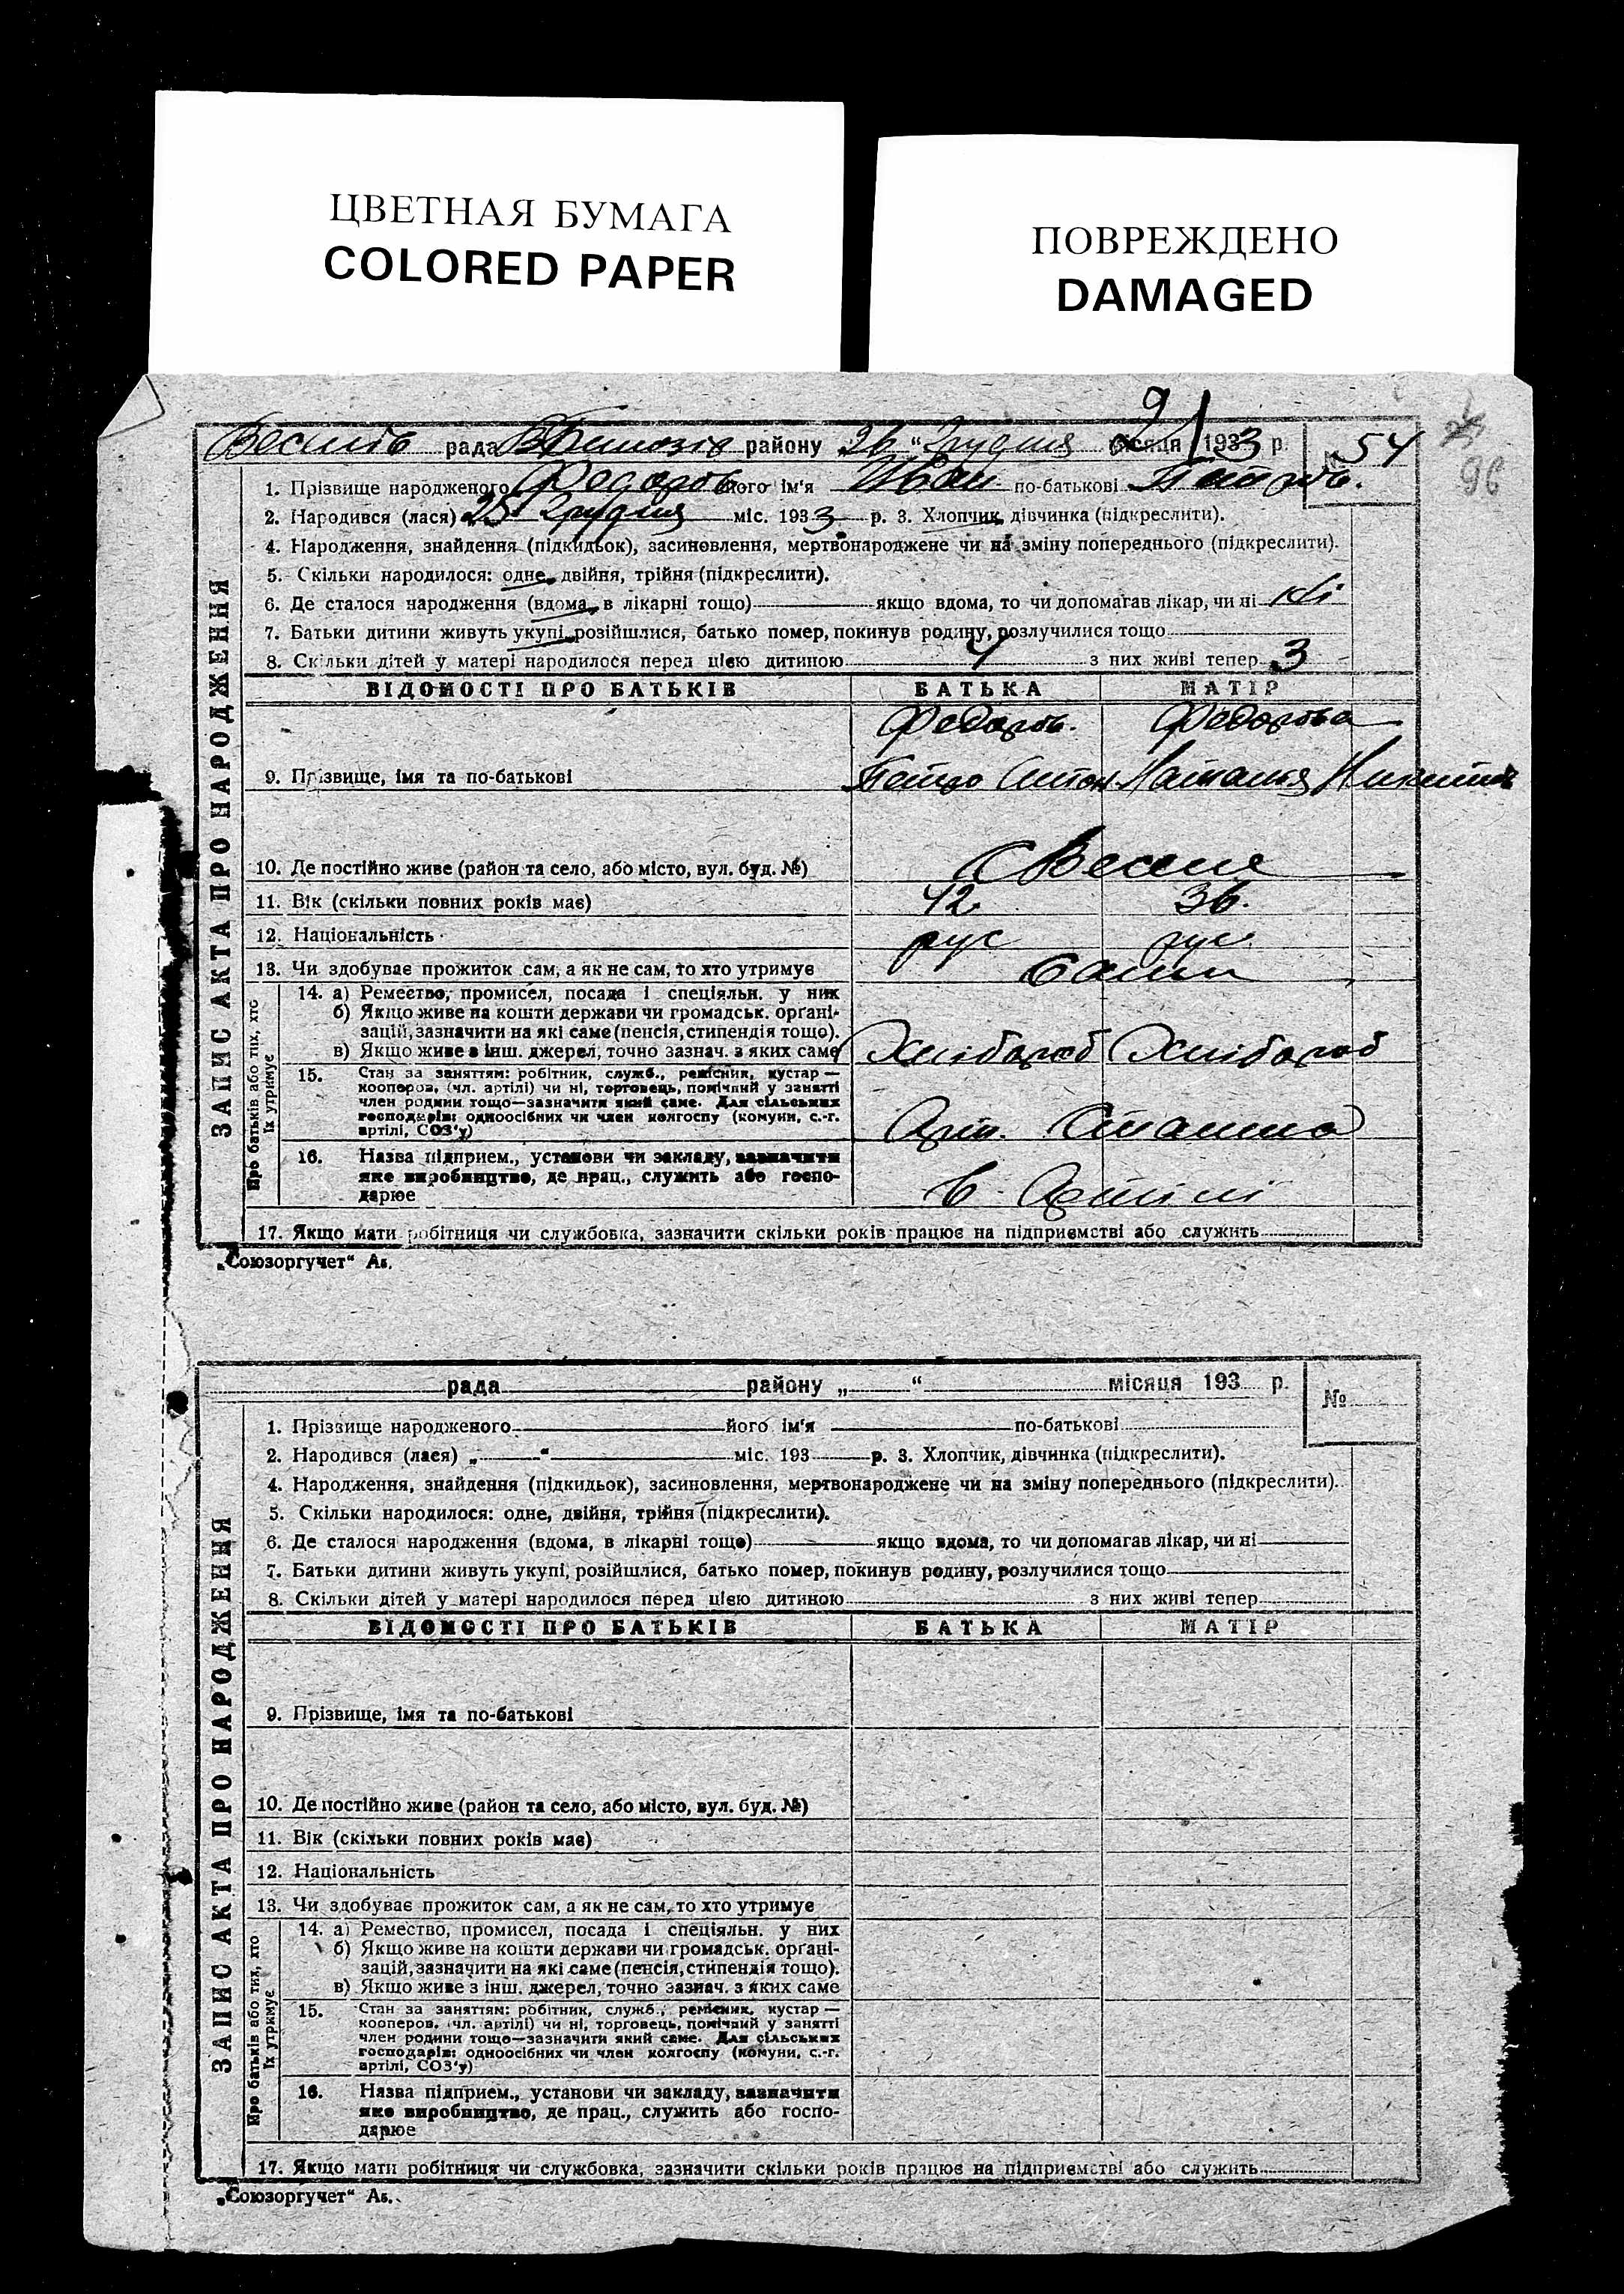 ЦВЕТНАЯ БУМАГА
COLORED PAPER
ПОВРЕЖДЕНО
DAMAGED
рада району 26 " Грудня місяця 1933 р. № 54
96
1. Прізвище народженого Федоров його ім'я Іван по-батькові Петров.
2. Народився (лася) 25 Грудня міс. 1933 р. 3. Хлопчик, дівчинка (підкреслити).
4. Народження, знайдення (підкидьок), засиновлення, мертвонароджене чи на зміну попереднього (підкреслити).
5. Скільки народилося: одне, двійня, трійня (підкреслити).
6. Де сталося народження (вдома, в лікарні тощо) якщо вдома, то чи допомагав лікар, чи ні ні
7. Батьки дитини живуть укупі, розійшлися, батько помер, покинув родину, розлучилися тощо
8. Скільки дітей у матері народилося перед цією дитиною 4 з них живі тепер 3
ЗАПИС АКТА ПРО НАРОДЖЕННЯ
ВІДОМОСТІ ПРО БАТЬКІВ БАТЬКА МАТІР
Федоров. Федорова
9. Прізвище, імя та по-батькові Петро Антон Наталия Никитов
10. Де постійно живе (район та село, або місто, вул. буд. №) с Веселя
11. Вік (скільки повних років має) 42 36.
12. Національність рус рус
13. Чи здобуває прожиток сам, а як не сам, то хто утримує сами
Про батьків або тих, хто їх утримує
14. а) Ремество, промисел, посада і спеціяльн. у них
б) Якщо живе на кошти держави чи громадськ. орґані-
зацій, зазначити на які саме (пенсія, стипендія тощо).
в) Якщо живе з інш. джерел, точно зазнач. з яких саме Хлібороб Хлібороб
15. Стан за заняттям: робітник, служб., ремісник, кустар —
кооперов. (чл. артілі) чи ні, торговець, помічний у занятті
член родини тощо—зазначити який саме. Для сільських
господарів: одноосібних чи член колгоспу (комуни, с.-г.
артілі, СОЗ'у) Арт. Сталина
16. Назва підприєм., установи чи закладу, зазначити
яке виробництво, де прац., служить або госпо-
дарює в Артілі
17. Якщо мати робітниця чи службовка, зазначити скільки років працює на підприємстві або служить
„Союзоргучет“ Ав.
рада району „ “ місяця 193 р. №
1. Прізвище народженого його ім'я по-батькові
2. Народився (лася) „ “ міс. 193 р. 3. Хлопчик, дівчинка (підкреслити).
4. Народження, знайдення (підкидьок), засиновлення, мертвонароджене чи на зміну попереднього (підкреслити).
5. Скільки народилося: одне, двійня, трійня (підкреслити).
6. Де сталося народження (вдома, в лікарні тощо) якщо вдома, то чи допомагав лікар, чи ні
7. Батьки дитини живуть укупі, розійшлися, батько помер, покинув родину, розлучилися тощо
8. Скільки дітей у матері народилося перед цією дитиною з них живі тепер
ЗАПИС АКТА ПРО НАРОДЖЕННЯ
ВІДОМОСТІ ПРО БАТЬКІВ БАТЬКА МАТІР
9. Прізвище, імя та по-батькові
10. Де постійно живе (район та село, або місто, вул. буд. №)
11. Вік (скільки повних років має)
12. Національність
13. Чи здобуває прожиток сам, а як не сам, то хто утримує
Про батьків або тих, хто їх утримує
14. а) Ремество, промисел, посада і спеціяльн. у них
б) Якщо живе на кошти держави чи громадськ. орґані-
зацій, зазначити на які саме (пенсія, стипендія тощо).
в) Якщо живе з інш. джерел, точно зазнач. з яких саме
15. Стан за заняттям: робітник, служб., ремісник, кустар —
кооперов. (чл. артілі) чи ні, торговець, помічний у занятті
член родини тощо—зазначити який саме. Для сільських
господарів: одноосібних чи член колгоспу (комуни, с.-г.
артілі, СОЗ'у)
16. Назва підприєм., установи чи закладу, зазначити
яке виробництво, де прац., служить або госпо-
дарює
17. Якщо мати робітниця чи службовка, зазначити скільки років працює на підприємстві або служить
„Союзоргучет“ Ав.